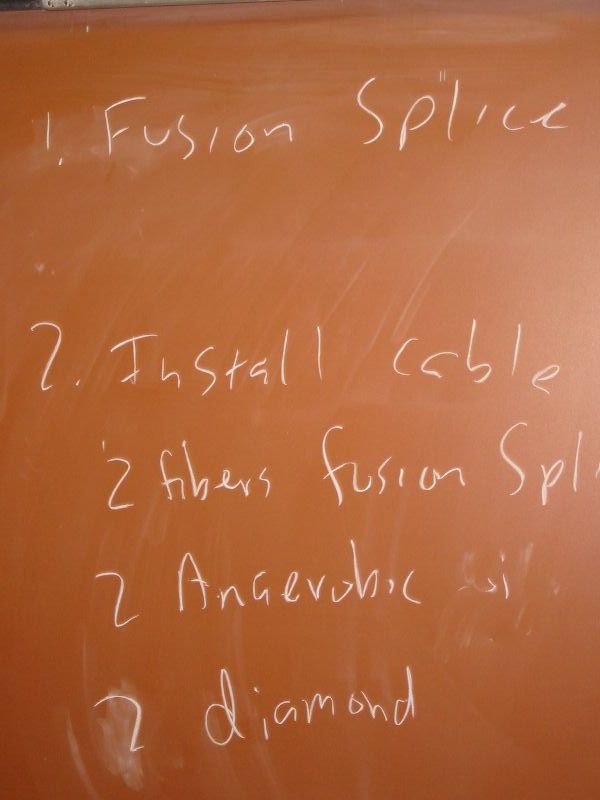 1. Fusion Splice
2. Install cable
2 fibers fusion Spli
2 Anaerobic
2 diamond